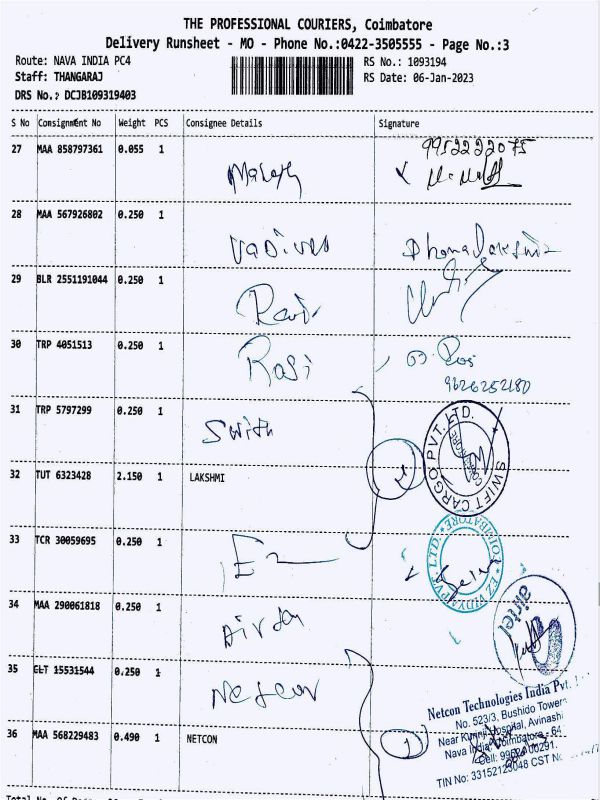 THE PROFESSIONAL COURIERS, Coimbatore
Delivery Runsheet - MO - Phone No.:0422-3505555 - Page No.:3
Route: NAVA INDIA PC4
RS No.: 1093194
Staff: THANGARAJ
RS Date: 06-Jan-2023
DRS No.: DCJB109319403
S No Consignment No Weight PCS Consignee Details Signature
27 MAA 858797361 0.055 1
9952222075
28 MAA 567926802 0.250 1
29 BLR 2551191044 0.250 1 Ravi
30 TRP 4051513 0.250 1 Rasi
9626252180
31 TRP 5797299 0.250 1
SWIFT CARGO PVT. LTD.
32 TUT 6323428 2.150 1 LAKSHMI
33 TCR 30059695 0.250 1
EZ VIDYA PVT. LTD. COIMBATORE
34 MAA 290061818 0.250 1
airtel
35 15531544 0.250 1 Netcon
Netcon Technologies India Pvt.
No. 523/3, Bushido Tower
Near Hospital, Avinashi
Nava India, Coimbatore - 64
36 MAA 568229483 0.490 1 NETCON
Cell:
TIN No: 33152125048 CST No